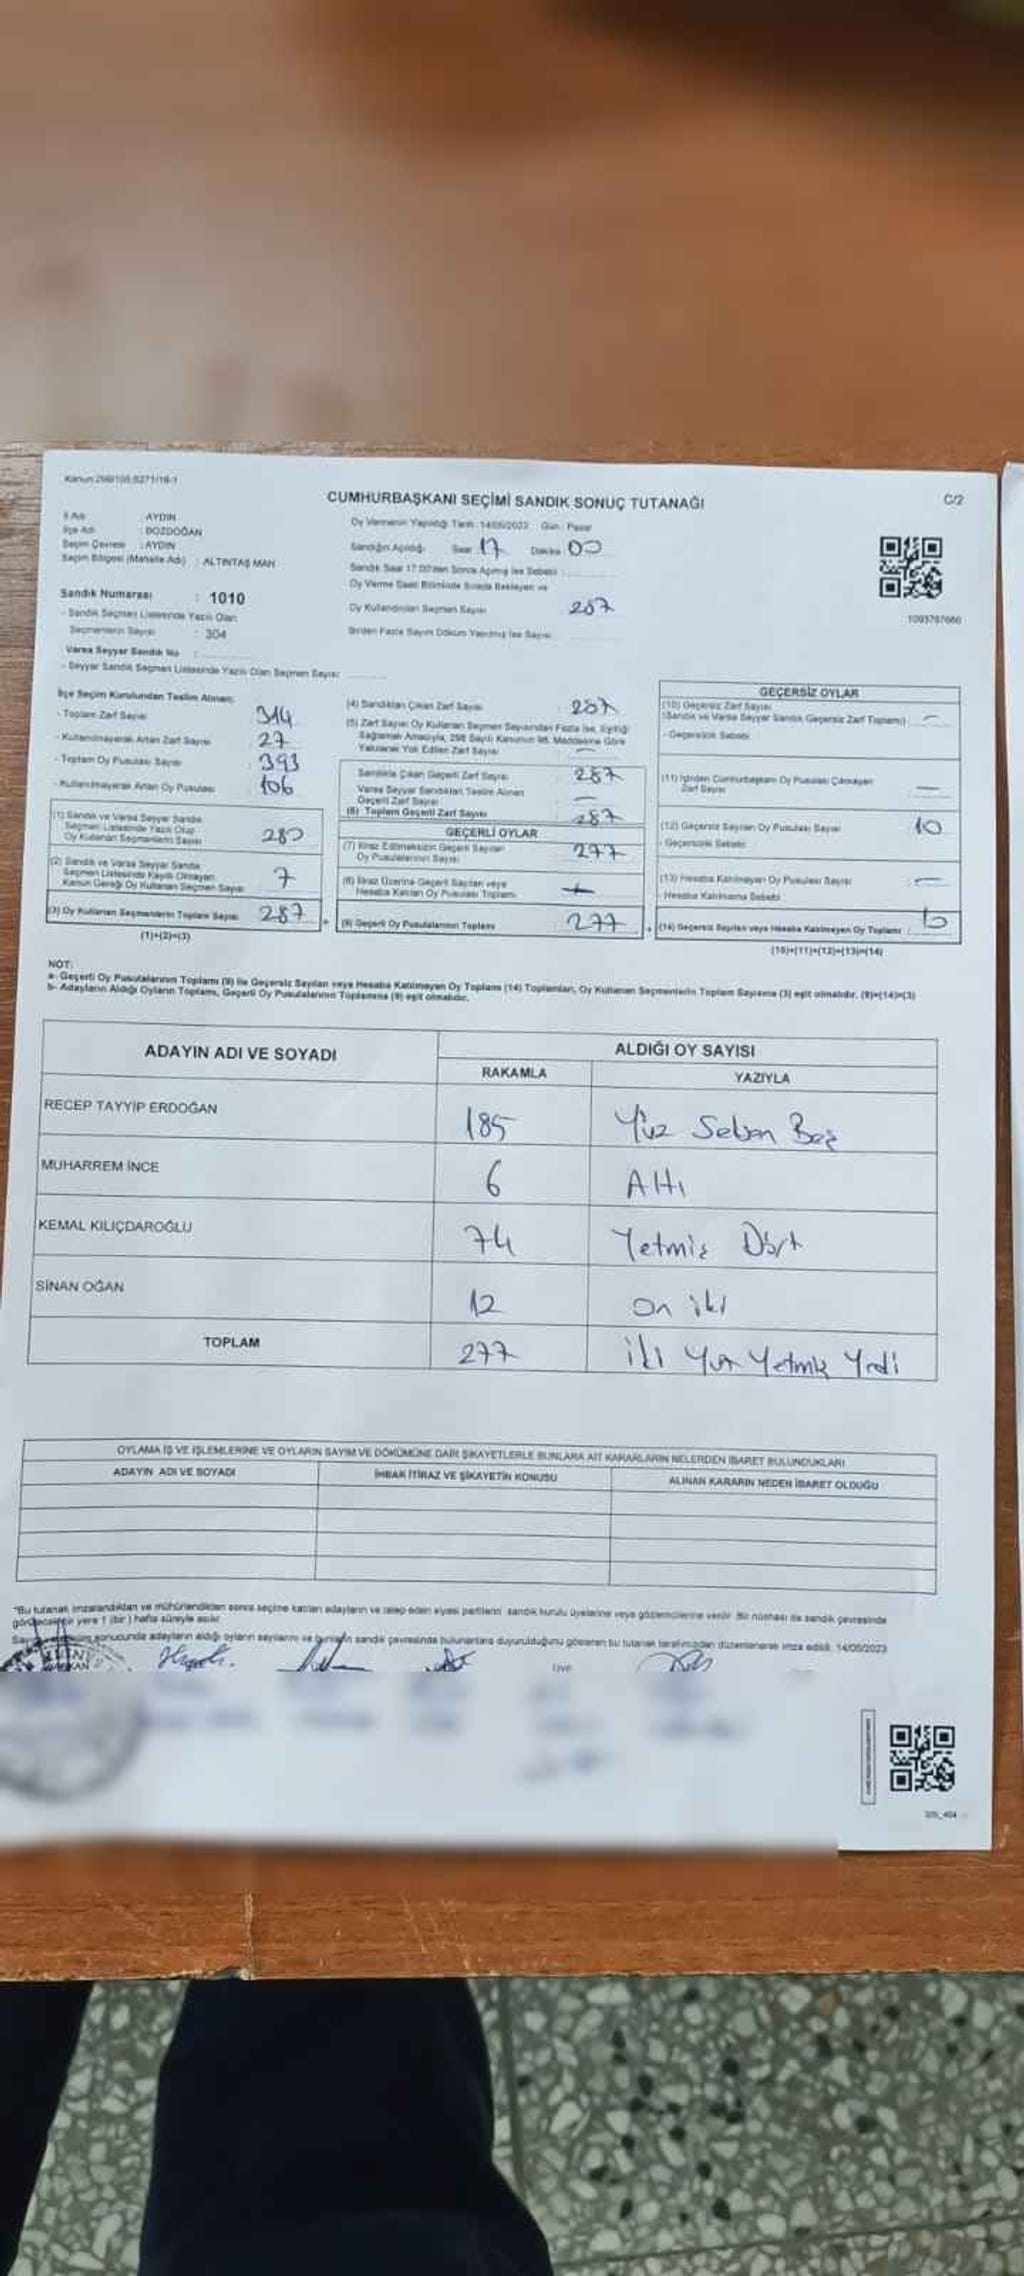 Kanun:298/105,6271/18-1
CUMHURBAŞKANI SEÇİMİ SANDIK SONUÇ TUTANAĞI
C/2
İl Adı : AYDIN
İlçe Adı : BOZDOĞAN
Seçim Çevresi : AYDIN
Seçim Bölgesi (Mahalle Adı) : ALTINTAŞ MAH
Sandık Numarası : 1010
- Sandık Seçmen Listesinde Yazılı Olan
Seçmenlerin Sayısı : 304
Varsa Seyyar Sandık No :
- Seyyar Sandık Seçmen Listesinde Yazılı Olan Seçmen Sayısı:
Oy Vermenin Yapıldığı Tarih: 14/05/2023 Gün: Pazar
Sandığın Açıldığı Saat 17 Dakika 00
Sandık Saat 17:00'den Sonra Açılmış İse Sebebi:
Oy Verme Saati Bitiminde Sırada Bekleyen ve
Oy Kullandırılan Seçmen Sayısı : 287
Birden Fazla Sayım Döküm Yapılmış İse Sayısı:
1093787660
İlçe Seçim Kurulundan Teslim Alınan:
- Toplam Zarf Sayısı : 314
- Kullanılmayarak Artan Zarf Sayısı : 27
- Toplam Oy Pusulası Sayısı : 393
- Kullanılmayarak Artan Oy Pusulası : 106
(1) Sandık ve Varsa Seyyar Sandık
Seçmen Listesinde Yazılı Olup
Oy Kullanan Seçmenlerin Sayısı 280
(2) Sandık ve Varsa Seyyar Sandık
Seçmen Listesinde Kayıtlı Olmayan
Kanun Gereği Oy Kullanan Seçmen Sayısı 7
(3) Oy Kullanan Seçmenlerin Toplam Sayısı 287
(1)+(2)=(3)
(4) Sandıktan Çıkan Zarf Sayısı : 287
(5) Zarf Sayısı Oy Kullanan Seçmen Sayısından Fazla İse, Eşitliği
Sağlamak Amacıyla, 298 Sayılı Kanunun 98. Maddesine Göre
Yakılarak Yok Edilen Zarf Sayısı : —
Sandıkta Çıkan Geçerli Zarf Sayısı : 287
Varsa Seyyar Sandıktan Teslim Alınan
Geçerli Zarf Sayısı : —
(6) Toplam Geçerli Zarf Sayısı : 287
GEÇERLİ OYLAR
(7) İtiraz Edilmeksizin Geçerli Sayılan
Oy Pusulalarının Sayısı 277
(8) İtiraz Üzerine Geçerli Sayılan veya
Hesaba Katılan Oy Pusulası Sayısı
(9) Geçerli Oy Pusulalarının Toplamı 277
GEÇERSİZ OYLAR
(10) Geçersiz Zarf Sayısı
(Sandık ve Varsa Seyyar Sandık Geçersiz Zarf Toplamı) : —
- Geçersizlik Sebebi
(11) İçinden Cumhurbaşkanı Oy Pusulası Çıkmayan
Zarf Sayısı —
(12) Geçersiz Sayılan Oy Pusulası Sayısı 10
- Geçersizlik Sebebi
(13) Hesaba Katılmayan Oy Pusulası Sayısı : —
- Hesaba Katılmama Sebebi
(14) Geçersiz Sayılan veya Hesaba Katılmayan Oy Toplamı : 10
(10)+(11)+(12)+(13)=(14)
NOT:
a- Geçerli Oy Pusulalarının Toplamı (9) ile Geçersiz Sayılan veya Hesaba Katılmayan Oy Toplamı (14) Toplamları, Oy Kullanan Seçmenlerin Toplam Sayısına (3) eşit olmalıdır. (9)+(14)=(3)
b- Adayların Aldığı Oyların Toplamı, Geçerli Oy Pusulalarının Toplamına (9) eşit olmalıdır.
ADAYIN ADI VE SOYADI
ALDIĞI OY SAYISI
RAKAMLA YAZIYLA
RECEP TAYYİP ERDOĞAN 185 Yüz Seksen Beş
MUHARREM İNCE 6 Altı
KEMAL KILIÇDAROĞLU 74 Yetmiş Dört
SİNAN OĞAN 12 On iki
TOPLAM 277 iki Yüz Yetmiş Yedi
OYLAMA İŞ VE İŞLEMLERİNE VE OYLARIN SAYIM VE DÖKÜMÜNE DAİR ŞİKAYETLERLE BUNLARA AİT KARARLARIN NELERDEN İBARET BULUNDUKLARI
ADAYIN ADI VE SOYADI İHBAR İTİRAZ VE ŞİKAYETİN KONUSU ALINAN KARARIN NEDEN İBARET OLDUĞU
*Bu tutanak imzalandıktan ve mühürlendikten sonra seçime katılan adayların ve talep eden siyasi partilerin sandık kurulu üyelerine veya gözlemcilerine verilir. Bir nüshası da sandık çevresinde
görülebilecek bir yere 1 (bir) hafta süreyle asılır.
sonucunda adayların aldığı oyların sayılarını ve bunların sandık çevresinde bulunanlara duyurulduğunu gösteren bu tutanak tarafımızdan düzenlenerek imza edildi. 14/05/2023
Üye